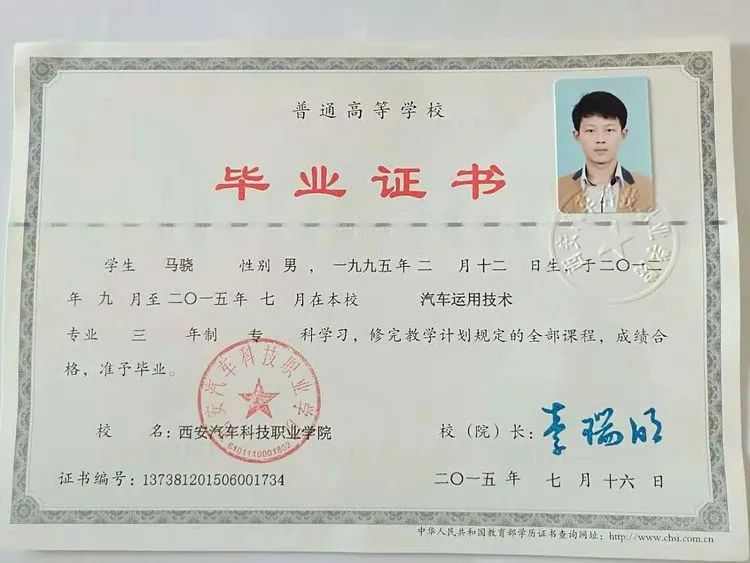 普通高等学校
毕业证书
学生 马骁 性别 男 ，一九九五年 二 月十二 日生，于二〇一二
年 九 月至二〇一五年 七 月在本校 汽车运用技术
专业 三 年制 专 科学习，修完教学计划规定的全部课程，成绩合
格，准予毕业。
西安汽车科技职业学院
6101110001802
校 名：西安汽车科技职业学院
校（院）长：李瑞明
证书编号：137381201506001734
二〇一五年 七 月 十六 日
中华人民共和国教育部学历证书查询网址：http://www.chsi.com.cn